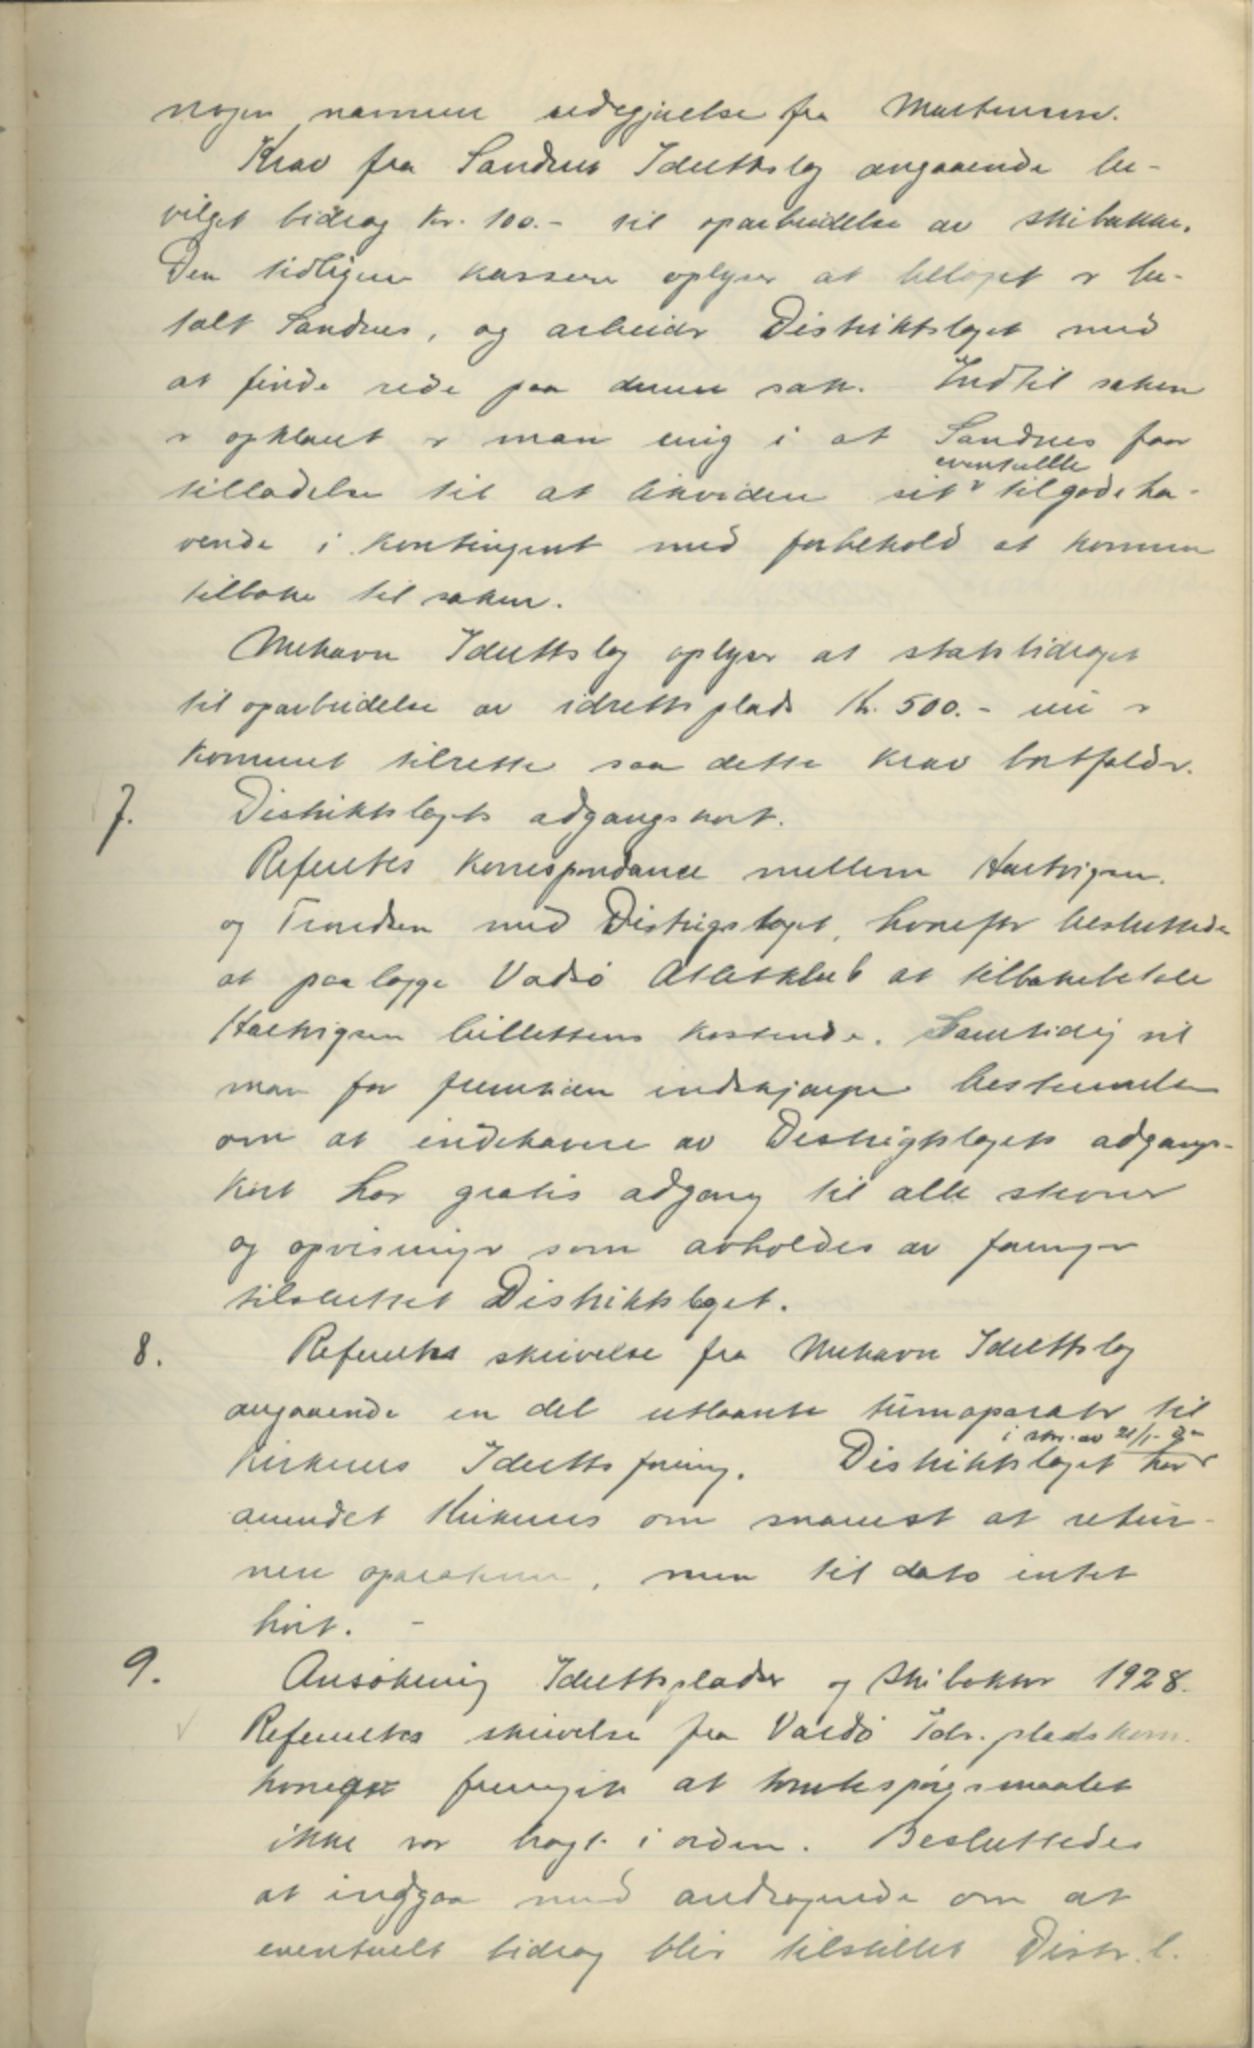 nogen nærmere redegjørelse fra Martensen.
Krav fra Sandnes Idrettslag angaaende be-
vilget bidrag kr. 100.- til oparbeidelse av skibakke.
Den tidligere kasserer oplyser at beløpet er be-
talt Sandnes, og arbeider Distriktslaget med
at finde rede paa denne sak. Indtil saken
er opklaret er man enig i at Sandnes faar
eventuelle
tilladelse til at likvidere sit tilgodeha-
vende i kontingent med forbehold at komme
tilbake til saken.
Mehavn Idrettslag oplyser at statsbidraget
til oparbeidelse av idrettsplads kr. 500.- nu er
kommet tilrette saa dette krav bortfalder.
7. Distriktslagets adgangskort.
Refertes korrespondance mellem Hartvigsen
og Trondsen med Distrigslaget, hvorefter besluttedes
at paalægge Vadsö Atletklub at tilbakebetale
Hartvigsen billettens kostende. Samtidig vil
man for fremtiden indskjærpe bestemmelsen
om at indehavere av Distrigtslagets adgangs-
kort har gratis adgang til alle stevner
og opvisninger som avholdes av foreninger
tilsluttet Distriktslaget.
8. Refertes skrivelse fra Mehavn Idrettslag
angaaende en del utlaante turnaparater til
i skr. av 21/1- d.a.
Kirkenes Idrettsforening. Distriktslaget har
anmodet Kirkenes om snarest at retur-
nere aparatene, men til dato intet
hört. -
9. Ansökning Idrettspladser og skibakker 1928.
Refertes skrivelse fra Vardö Idr. pladskom.
hvorav fremgik at tomtespörgsmaalet
ikke var bragt i orden. Besluttedes
at indgaa med andragende om at
eventuelt bidrag blir tilstillet Distr. l.